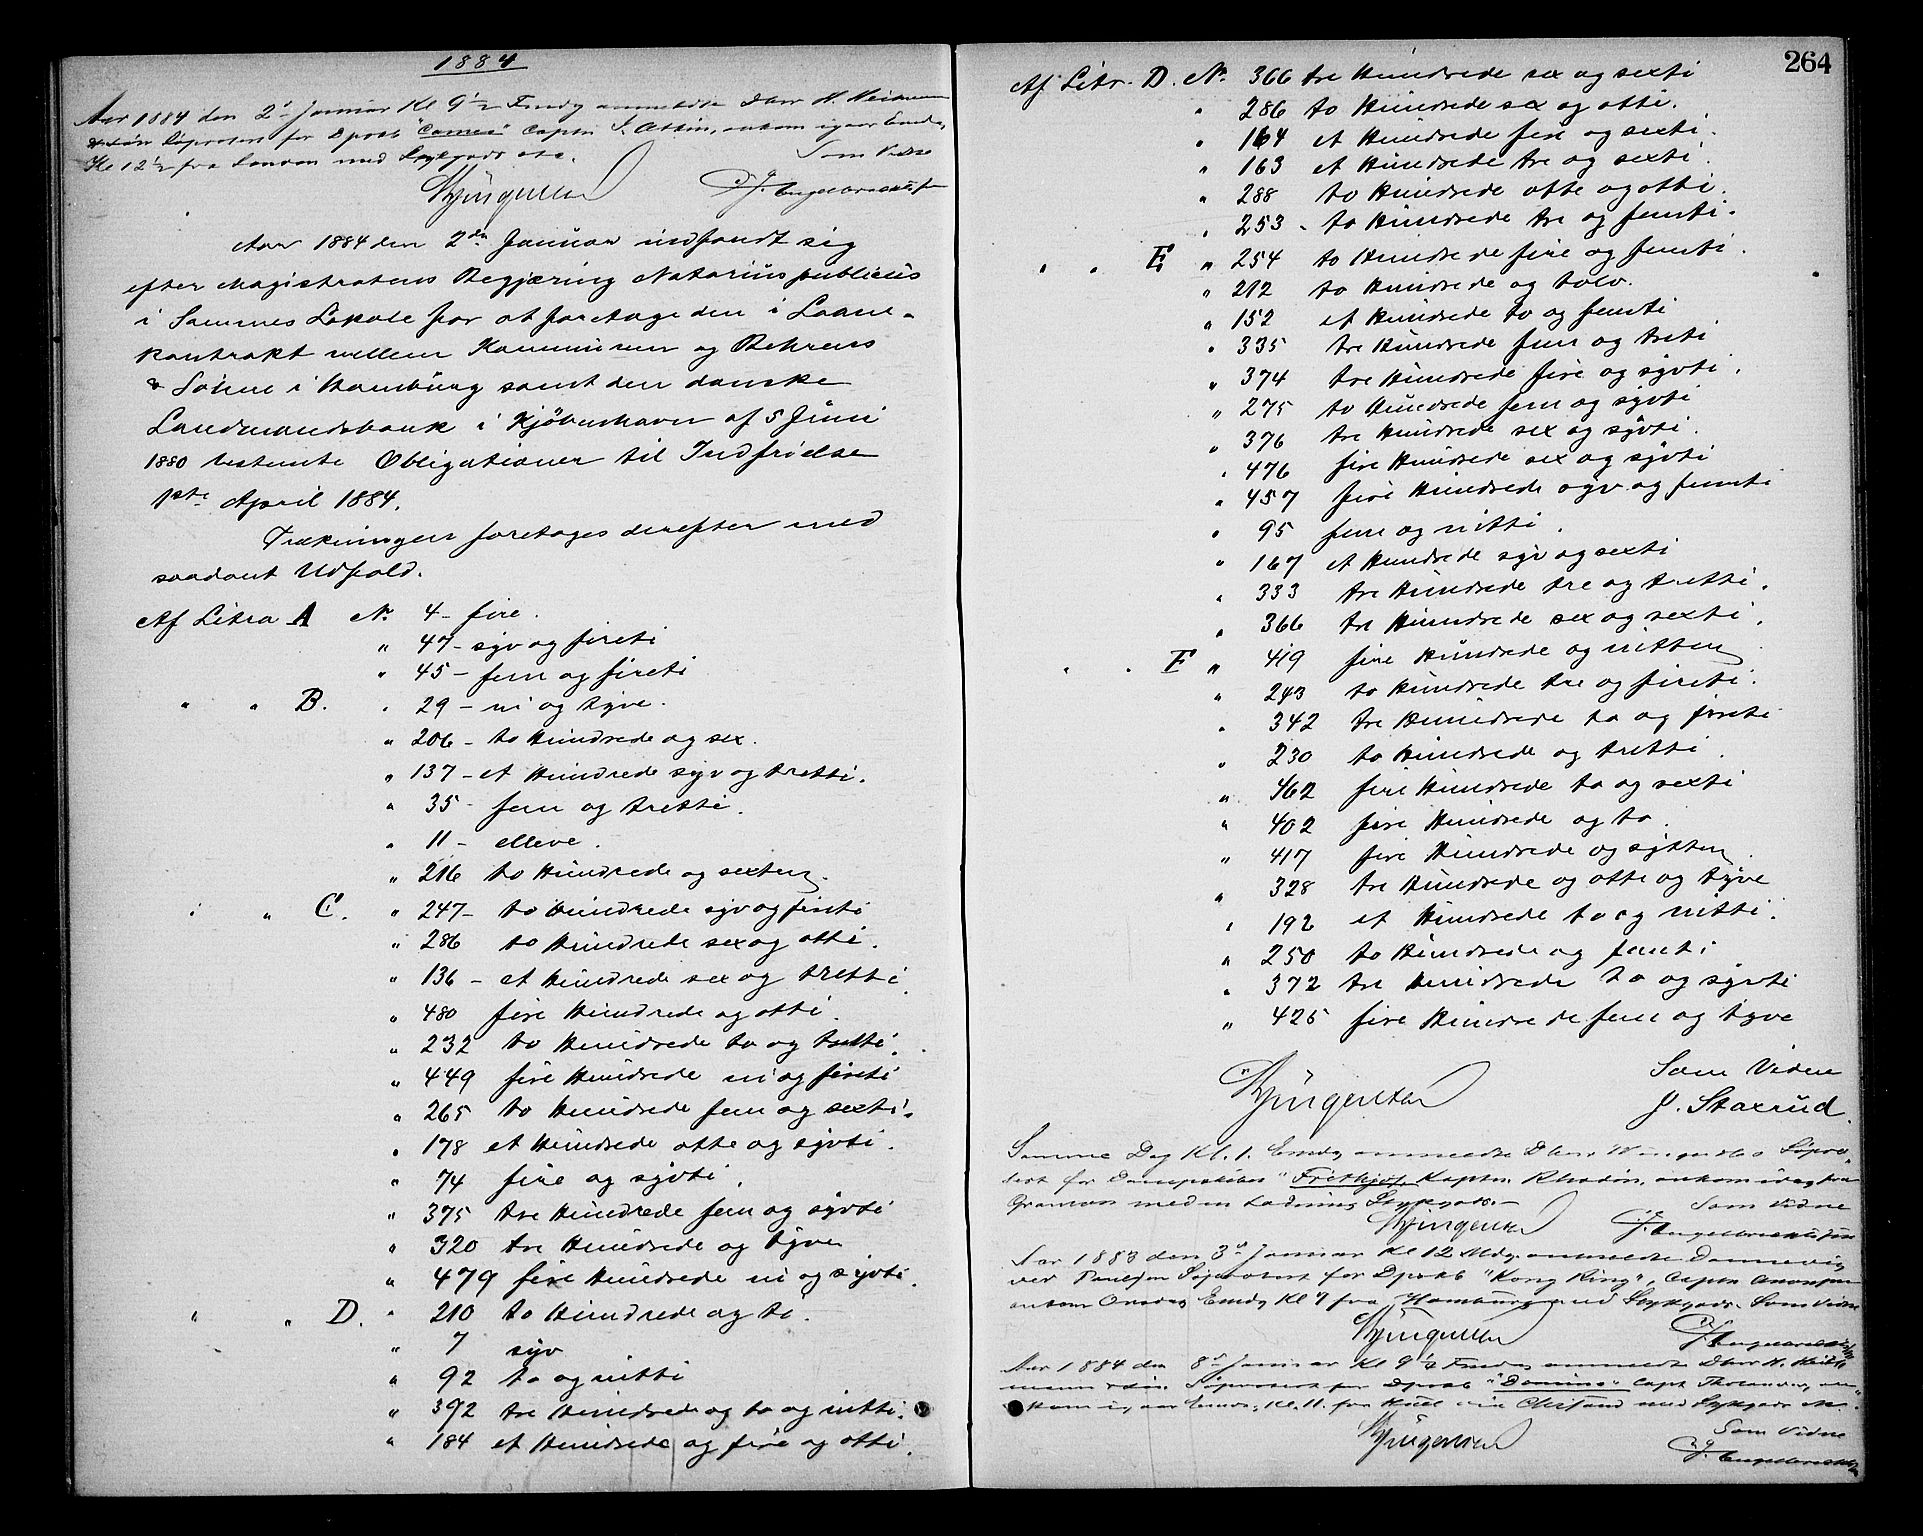 1884
Aar 1884 den 2d Januar Kl 9½ Fmdg anmeldte Dhrr H. Heitmann
& Søn Søprotest for Dpskb "Cameo" Captn J. Atkin, ankom igaar Emdg
Kl 12½ fra London med Stykgods etc.
Som Vidne
Engelbrecht
Aar 1884 den 2den Januar indfandt sig
efter Magistratens Begjæring Notarius publicus
i Sammes Lokale for at foretage den i Laane-
kontrakt mellem Kommunen og Behrens
& Söhne i Hamburg samt den danske
Landmandsbank i Kjöbenhavn af 5 Juni
1880 bestemte Obligationer til Indfrielse
1ste April 1884.
Trækningen foretages derefter med
saadant Udfald.
Af Litra A No. 4 - fire.
" 47 - syv og fireti
" 45 - fem og fireti
" " B. " 29 - ni og tyve.
" 206 - to Hundrede og sex.
" 137 - et Hundrede syv og tretti.
" 35 - fem og tretti.
" 11 - elleve.
" 216 to Hundrede og sexten.
" " C. " 247 - to Hundrede syv og fireti
" 286 to Hundrede sex og otti.
" 136 - et Hundrede sex og tretti
" 480 fire Hundrede og otti.
" 232 to Hundrede to og tretti.
" 449 fire Hundrede ni og fireti
" 265 to Hundrede fem og sexti.
" 178 et Hundrede otte og sÿvti.
" 74 fire og syvti.
" 375 tre Hundrede fem og syvti
" 320 tre Hundrede og tyve
" 479 fire Hundrede ni og syvti.
" " D. " 210 to Hundrede og ti.
" 7 syv
" 92 to og nitti
" 392 tre Hundrede og to og nitti.
" 184 et Hundrede og fire og otti.
264
Af Litr. D. No. 366 tre Hundrede sex og sexti
" 286 to Hundrede sex og otti.
" 164 et Hundrede fire og sexti.
" 163 et Hundrede tre og sexti.
" 288 to Hundrede otte og otti.
" 253 - to Hundrede tre og femti.
" " E " 254 to Hundrede fire og femti.
" 212 to Hundrede og tolv.
" 152 et Hundrede to og femti
" 335 tre Hundrede fem og treti
" 374 tre Hundrede fire og syvti.
" 275 to Hundrede fem og syvti
" 376 tre Hundrede sex og syvti.
" 476 fire Hundrede sex og syvti
" 457 fire Hundrede syv og femti
" 95 fem og nitti.
" 167 et Hundrede syv og sexti
" 333 tre Hundrede tre og tretti.
" 366 tre Hundrede sex og sexti.
" " F " 419 fire Hundrede og nitten
" 243 to Hundrede tre og fireti.
" 342 tre Hundrede to og fireti
" 230 to Hundrede og tretti.
" 462 fire Hundrede to og sexti
" 402 fire Hundrede og to.
" 417 fire Hundrede og sytten.
" 328 tre Hundrede og otte og tyve
" 192 et Hundrede to og nitti.
" 250 to Hundrede og femti
" 372 tre Hundrede to og syvti
" 425 fire Hundrede fem og tyve
Som Vidne
J. Staxrud.
Samme Dag Kl. 1. Emdg anmeldte Dhrr Søpro-
test for Dampskibet "Frethjof" Kaptn. ankom idag fra
med en Ladning Stykgods.
Som Vidne
Engelbrecht
Aar 1883 den 3d Januar Kl 12 Mdg. anmeldte
Søprotest for Dpskb "Kong Ring", Captn
ankom Onsdag Emdg Kl 7 fra Hamburg med Stykgods. Som Vidne
Engelbrecht
Aar 1884 den 8d Januar Kl 9½ Fmdg anmeldte Dhrr H. Heit-
mann & Søn Søprotest for Dpskb "Domino" Capt. an-
kom igaar Emdg. Kl. 11. fra Hull via Chrsand med Stykgods etc.
Som Vidne
Engelbrecht